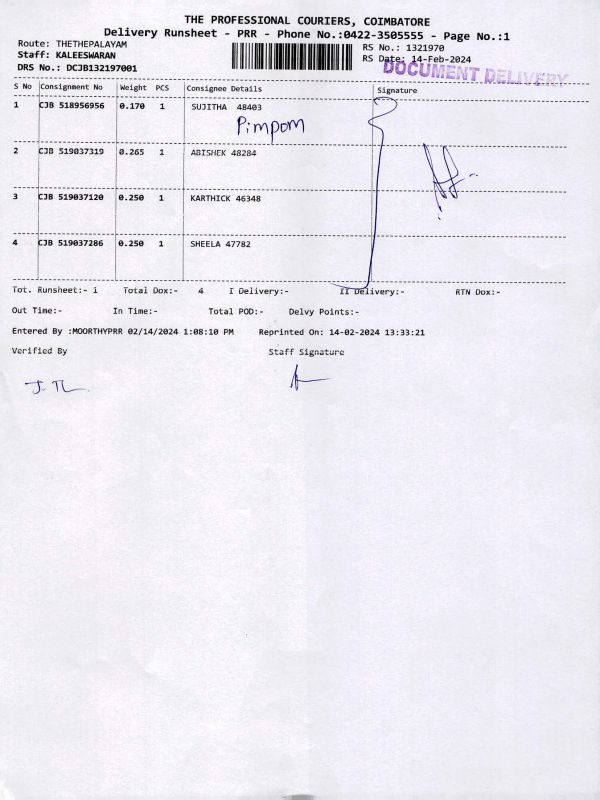 THE PROFESSIONAL COURIERS, COIMBATORE
Delivery Runsheet - PRR - Phone No.:0422-3505555 - Page No.:1
Route: THETHEPALAYAM RS No.: 1321970
Staff: KALEESWARAN RS Date: 14-Feb-2024
DRS No.: DCJB132197001
DOCUMENT DELIVERY
S No Consignment No Weight PCS Consignee Details Signature
1 CJB 518956956 0.170 1 SUJITHA 48403
Pimpom
2 CJB 519037319 0.265 1 ABISHEK 48284
3 CJB 519037120 0.250 1 KARTHICK 46348
4 CJB 519037286 0.250 1 SHEELA 47782
Tot. Runsheet:- 1 Total Dox:- 4 I Delivery:- II Delivery:- RTN Dox:-
Out Time:- In Time:- Total POD:- Delvy Points:-
Entered By :MOORTHYPRR 02/14/2024 1:08:10 PM Reprinted On: 14-02-2024 13:33:21
Verified By Staff Signature